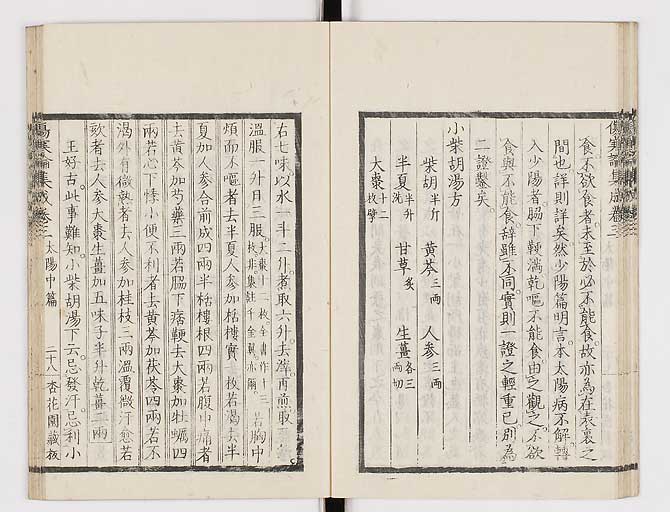 傷寒論集成卷三
食不欲食者未至於必不能食故亦為在表裏之
間也詳則詳矣然少陽篇明言本太陽病不解轉
入少陽者脇下鞕満乾嘔不能食由之觀之不欲
食與不能食辭雖不同實則一證之輕重已別為
二證鑿矣
小柴胡湯方
柴胡半斤 黃芩三兩 人参三兩
半夏半升洗 甘草炙 生薑各三兩切
大棗十二枚擘
右七味以水一斗二升煮取六升去滓再煎取三升
溫服一升日三服 若胸中
煩而不嘔者去半夏人参加栝樓實一枚若渴去半
夏加人参合前成四兩半栝樓根四兩若腹中痛者
去黃芩加芍藥三兩若脇下痞鞕去大棗加牡蠣四
兩若心下悸小便不利者去黃芩加茯苓四兩若不
渴外有微熱者去人参加桂枝三兩溫覆微汗愈若
欬者去人参大棗生薑加五味子半升乾薑二兩
王好古此事難知小柴胡湯下云忌發汗忌利小
傷寒論集成卷三 太陽中篇 二十八 杏花園藏板